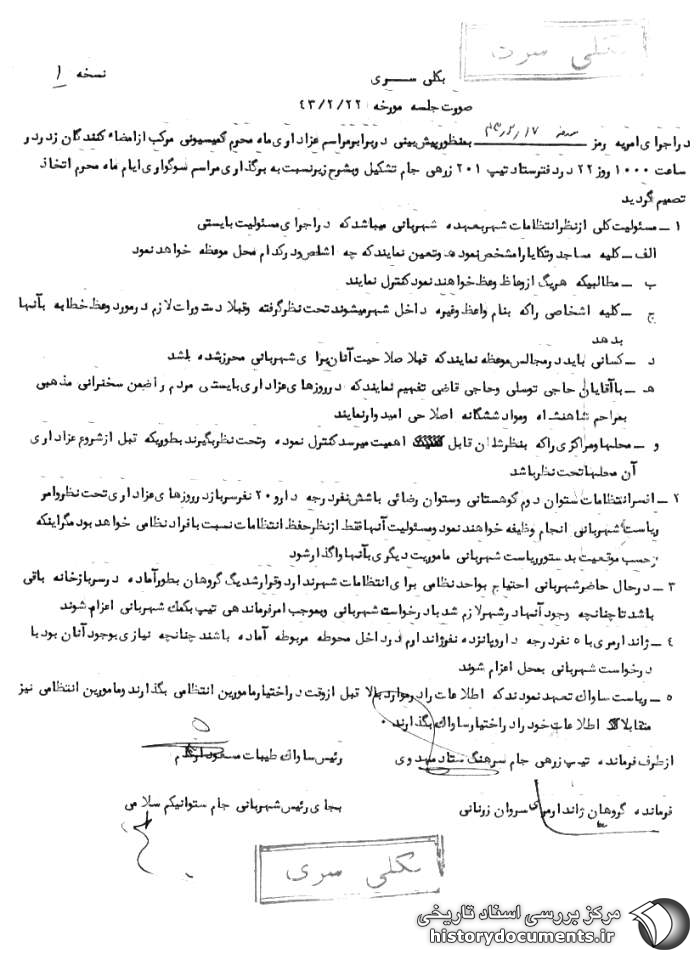 بکلی سری
نسخه ۱
بکلی سری
صورت جلسه مورخه ۴۳/۲/۲۲
در اجرای امریه رمز بمنظور پیش بینی در برابر مراسم عزاداری ماه محرم کمیسیونی مرکب از امضاء کنندگان زیر در
ساعت ۱۰۰۰ روز ۲۲ در دفتر ستاد تیپ ۲۰۱ زرهی جام تشکیل و بشرح زیر نسبت به برگذاری مراسم سوگواری ایام ماه محرم اتخاذ
تصمیم گردید
۱ – مسئولیت کلی از نظر انتظامات شهر بعهده شهربانی میباشد که در اجرای مسئولیت بایستی
الف – کلیه مساجد و تکایا را مشخص نموده و تعیین نمایند که چه اشخاص و در کدام محل موعظه خواهد نمود
ب – مطالبیکه هریک از وعاظ وعظ خواهند نمود کنترل نمایند
ج – کلیه اشخاصی را که بنام واعظ وغیره داخل شهر میشوند تحت نظر گرفته وقبلا دستورات لازم در مورد وعظ خطابه بآنها
بدهد
د – کسانی باید در مجالس موعظه نمایند که قبلا صلاحیت آنان برای شهربانی محرز شده باشد
هـ – با آقایان حاجی توسلی وحاجی قاضی تفهیم نمایند که در روزهای عزاداری بایستی مردم را ضمن سخنرانی مذهبی
بمراحم شاهنشاه ومواد ششگانه اصلاحی امیدوار نمایند
و – محلها ومراکزی را که بنظرشان قابل اهمیت میرسد کنترل نموده وتحت نظر بگیرند بطوریکه قبل از شروع عزاداری
آن محلها تحت نظر باشد
۲ – افسر انتظامات ستوان دوم کوهستانی وستوان رضائی باشش نفر درجه دار و ۲۰ نفر سرباز در روزهای عزاداری تحت نظر وامر
ریاست شهربانی انجام وظیفه خواهند نمود ومسئولیت آنها فقط از نظر حفظ انتظامات نسبت بافراد نظامی خواهد بود مگر اینکه
برحسب موقعیت بدستور ریاست شهربانی ماموریت دیگری بآنها واگذار شود
۳ – در حال حاضر شهربانی احتیاج بواحد نظامی برای انتظامات شهر ندارد وقرار شد یک گروهان بطور آماده در سربازخانه باقی
باشد تا چنانچه وجود آنها در شهر لازم شد بادرخواست شهربانی وبموجب امر فرماندهی تیپ بکمک شهربانی اعزام شوند
۴ – ژاندارمری با ۵ نفر درجه دار و پانزده نفر ژاندارم در داخل محوطه مربوطه آماده باشند چنانچه نیازی بوجود آنان بود با
درخواست شهربانی بمحل اعزام شوند
۵ – ریاست ساواک تعهد نمودند که اطلاعات را در موارد بالا قبل از وقت در اختیار مامورین انتظامی بگذارند ومامورین انتظامی نیز
متقابلا اطلاعات خود را در اختیار ساواک بگذارند .
از طرف فرمانده تیپ زرهی جام سرهنگ ستاد مهدوی
رئیس ساواک طیبات مسعود
فرمانده گروهان ژاندارمری سروان زرنانی
بجای رئیس شهربانی جام ستوانیکم سلامی
بکلی سری
مرکز بررسی اسناد تاریخی
historydocuments.ir